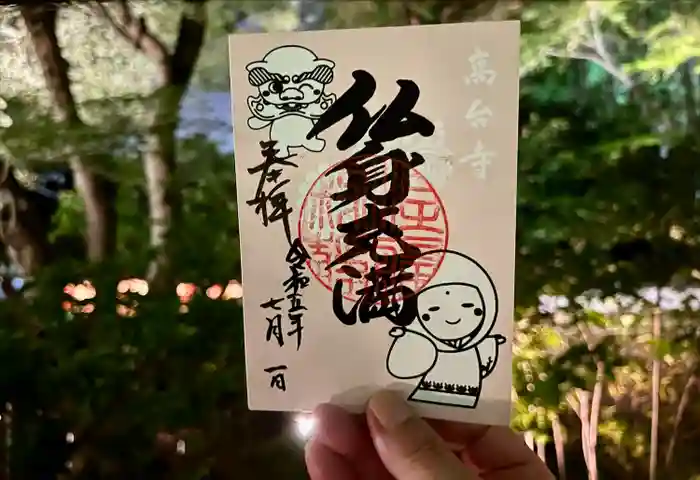 高台寺
仏身光満
奉拝
令和五年
七月
一日